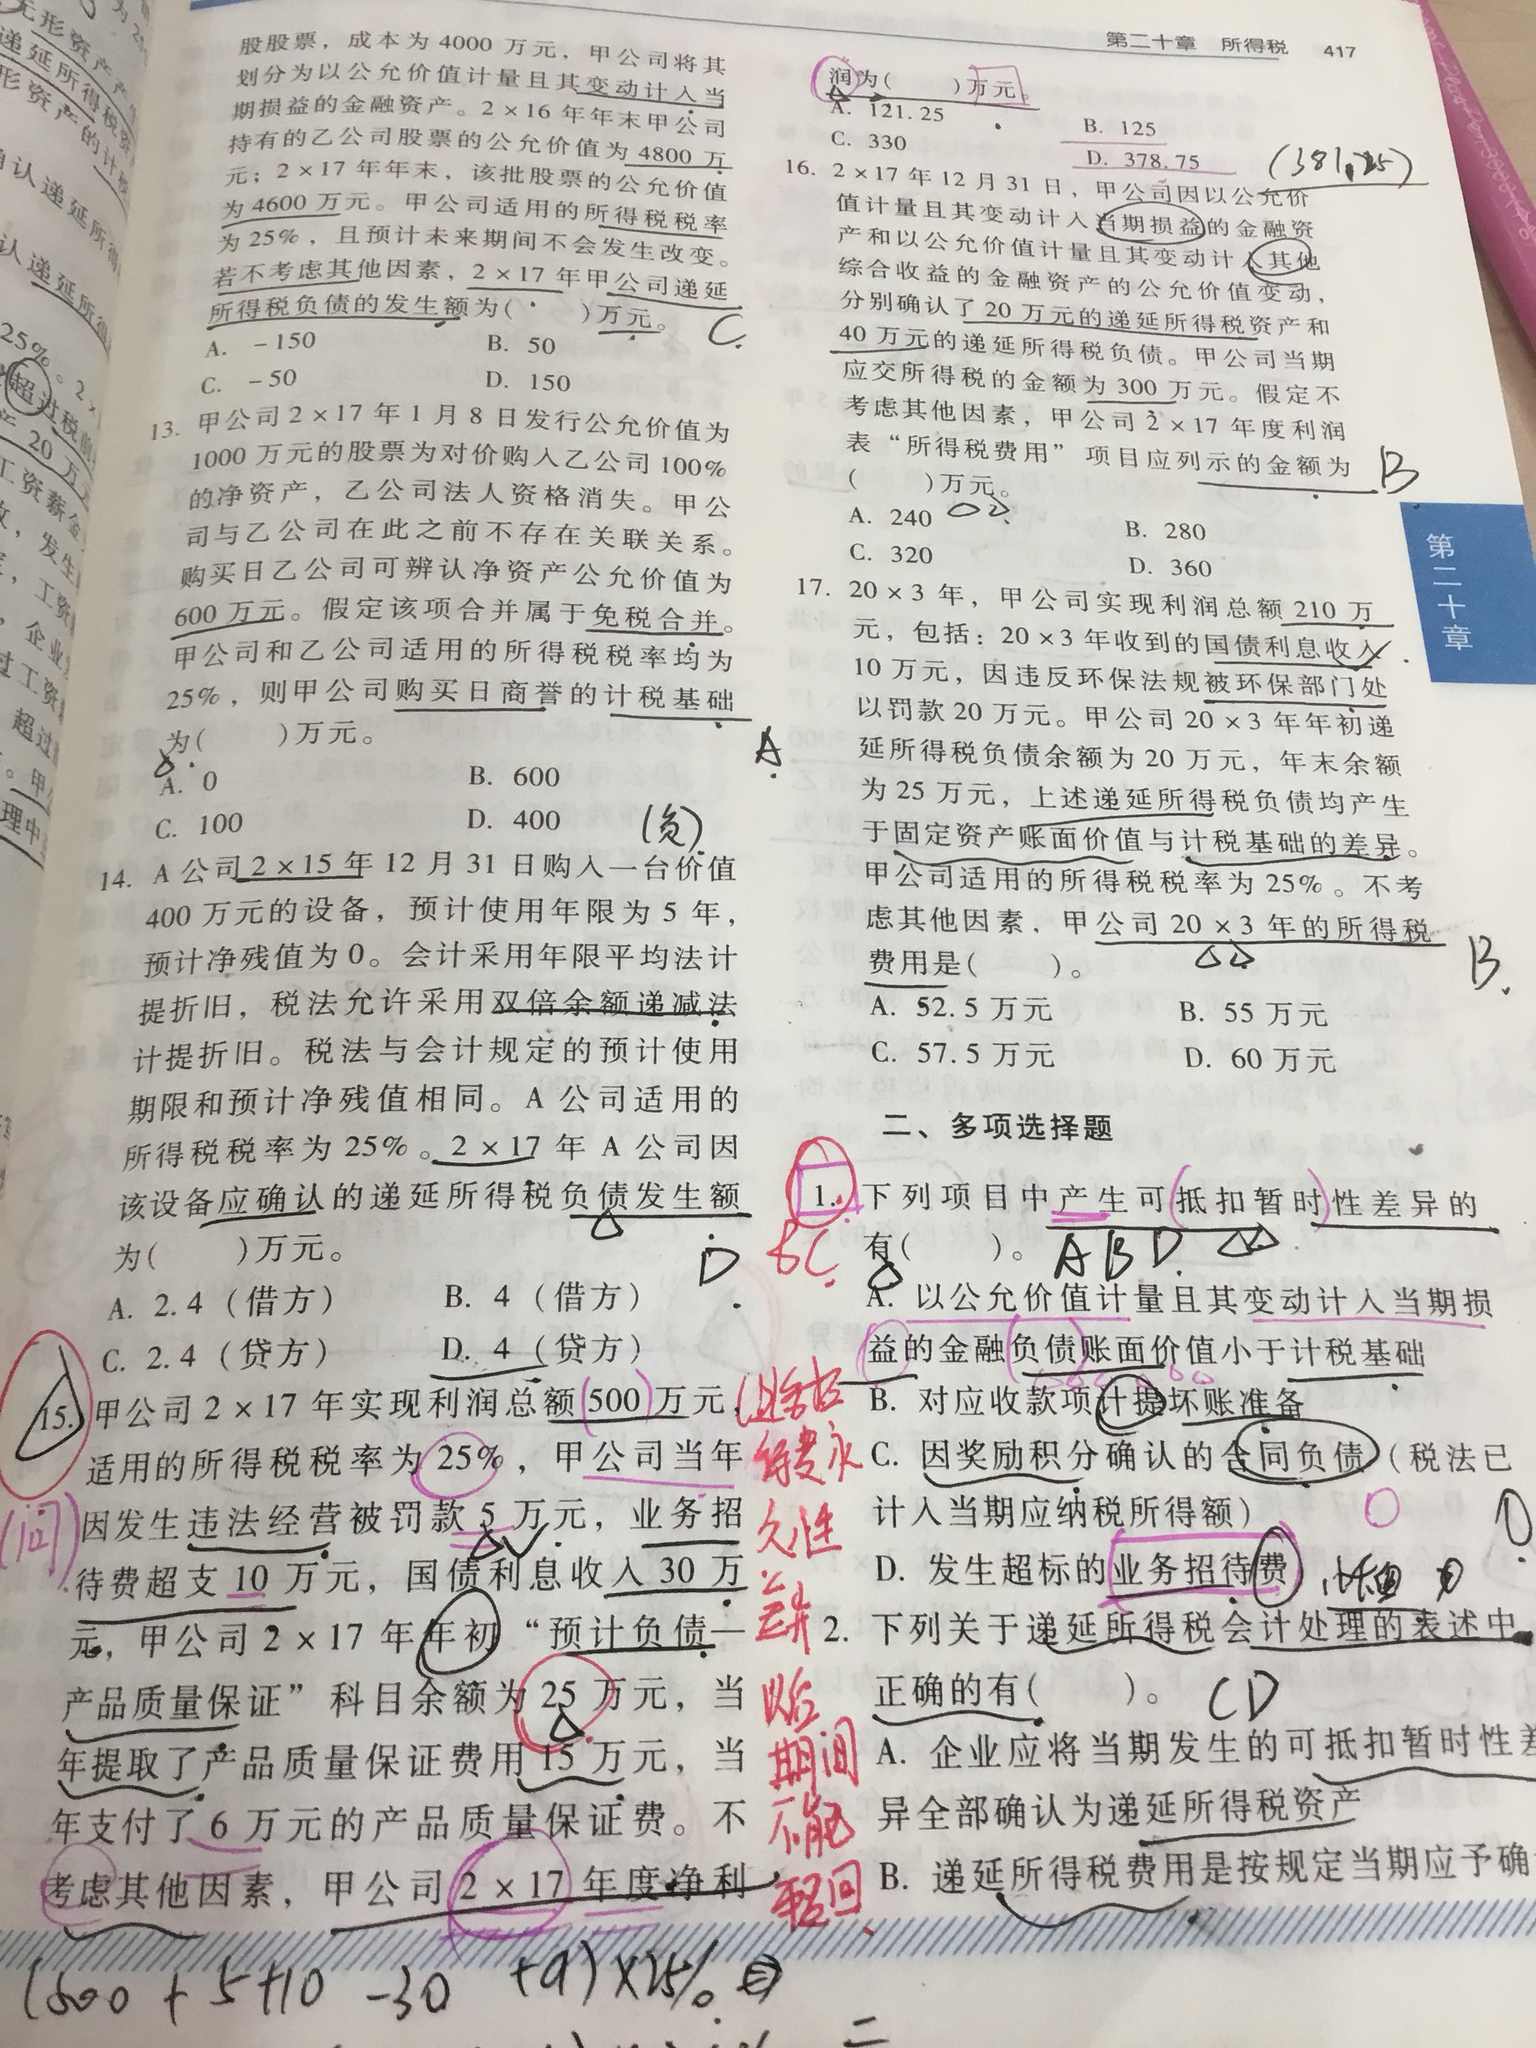 第二十章 所得税 417
股股票，成本为4000万元，甲公司将其
划分为以公允价值计量且其变动计入当
期损益的金融资产。2×16年年末甲公司
持有的乙公司股票的公允价值为4800万
元；2×17年年末，该批股票的公允价值
为4600万元。甲公司适用的所得税税率
为25%，且预计未来期间不会发生改变。
若不考虑其他因素，2×17年甲公司递延
所得税负债的发生额为( )万元。 C
A. -150 B. 50
C. -50 D. 150
13. 甲公司2×17年1月8日发行公允价值为
1000万元的股票为对价购入乙公司100%
的净资产，乙公司法人资格消失。甲公
司与乙公司在此之前不存在关联关系。
购买日乙公司可辨认净资产公允价值为
600万元。假定该项合并属于免税合并。
甲公司和乙公司适用的所得税税率均为
25%，则甲公司购买日商誉的计税基础
为( )万元。 A
A. 0 B. 600
C. 100 D. 400
(负)
14. A公司2×15年12月31日购入一台价值
400万元的设备，预计使用年限为5年，
预计净残值为0。会计采用年限平均法计
提折旧，税法允许采用双倍余额递减法
计提折旧。税法与会计规定的预计使用
期限和预计净残值相同。A公司适用的
所得税税率为25%。2×17年A公司因
该设备应确认的递延所得税负债发生额
为( )万元。 D
A. 2.4（借方） B. 4（借方）
C. 2.4（贷方） D. 4（贷方）
15. 甲公司2×17年实现利润总额500万元，
适用的所得税税率为25%，甲公司当年
因发生违法经营被罚款5万元，业务招
待费超支10万元，国债利息收入30万
元，甲公司2×17年年初“预计负债—
产品质量保证”科目余额为25万元，当
年提取了产品质量保证费用15万元，当
年支付了6万元的产品质量保证费。不
考虑其他因素，甲公司2×17年度净利
(问)
(500+5+10-30+9)×25%
润为( )万元。
A. 121.25 B. 125
C. 330 D. 378.75
(381.25)
16. 2×17年12月31日，甲公司因以公允价
值计量且其变动计入当期损益的金融资
产和以公允价值计量且其变动计入其他
综合收益的金融资产的公允价值变动，
分别确认了20万元的递延所得税资产和
40万元的递延所得税负债。甲公司当期
应交所得税的金额为300万元。假定不
考虑其他因素，甲公司2×17年度利润
表“所得税费用”项目应列示的金额为 B
( )万元。
A. 240 B. 280
C. 320 D. 360
17. 20×3年，甲公司实现利润总额210万
元，包括：20×3年收到的国债利息收入
10万元，因违反环保法规被环保部门处
以罚款20万元。甲公司20×3年年初递
延所得税负债余额为20万元，年末余额
为25万元，上述递延所得税负债均产生
于固定资产账面价值与计税基础的差异。
甲公司适用的所得税税率为25%。不考
虑其他因素，甲公司20×3年的所得税
费用是( )。 B.
A. 52.5万元 B. 55万元
C. 57.5万元 D. 60万元
二、多项选择题
1. 下列项目中产生可抵扣暂时性差异的
有( )。 ABD.
BC.
A. 以公允价值计量且其变动计入当期损
益的金融负债账面价值小于计税基础
B. 对应收款项计提坏账准备
C. 因奖励积分确认的合同负债（税法已
计入当期应纳税所得额）
D. 发生超标的业务招待费
2. 下列关于递延所得税会计处理的表述中，
正确的有( )。 CD
A. 企业应将当期发生的可抵扣暂时性差
异全部确认为递延所得税资产
B. 递延所得税费用是按规定当期应予确
业务招
待费永
久性
差异
以后
期间
不能
转回
第二十章